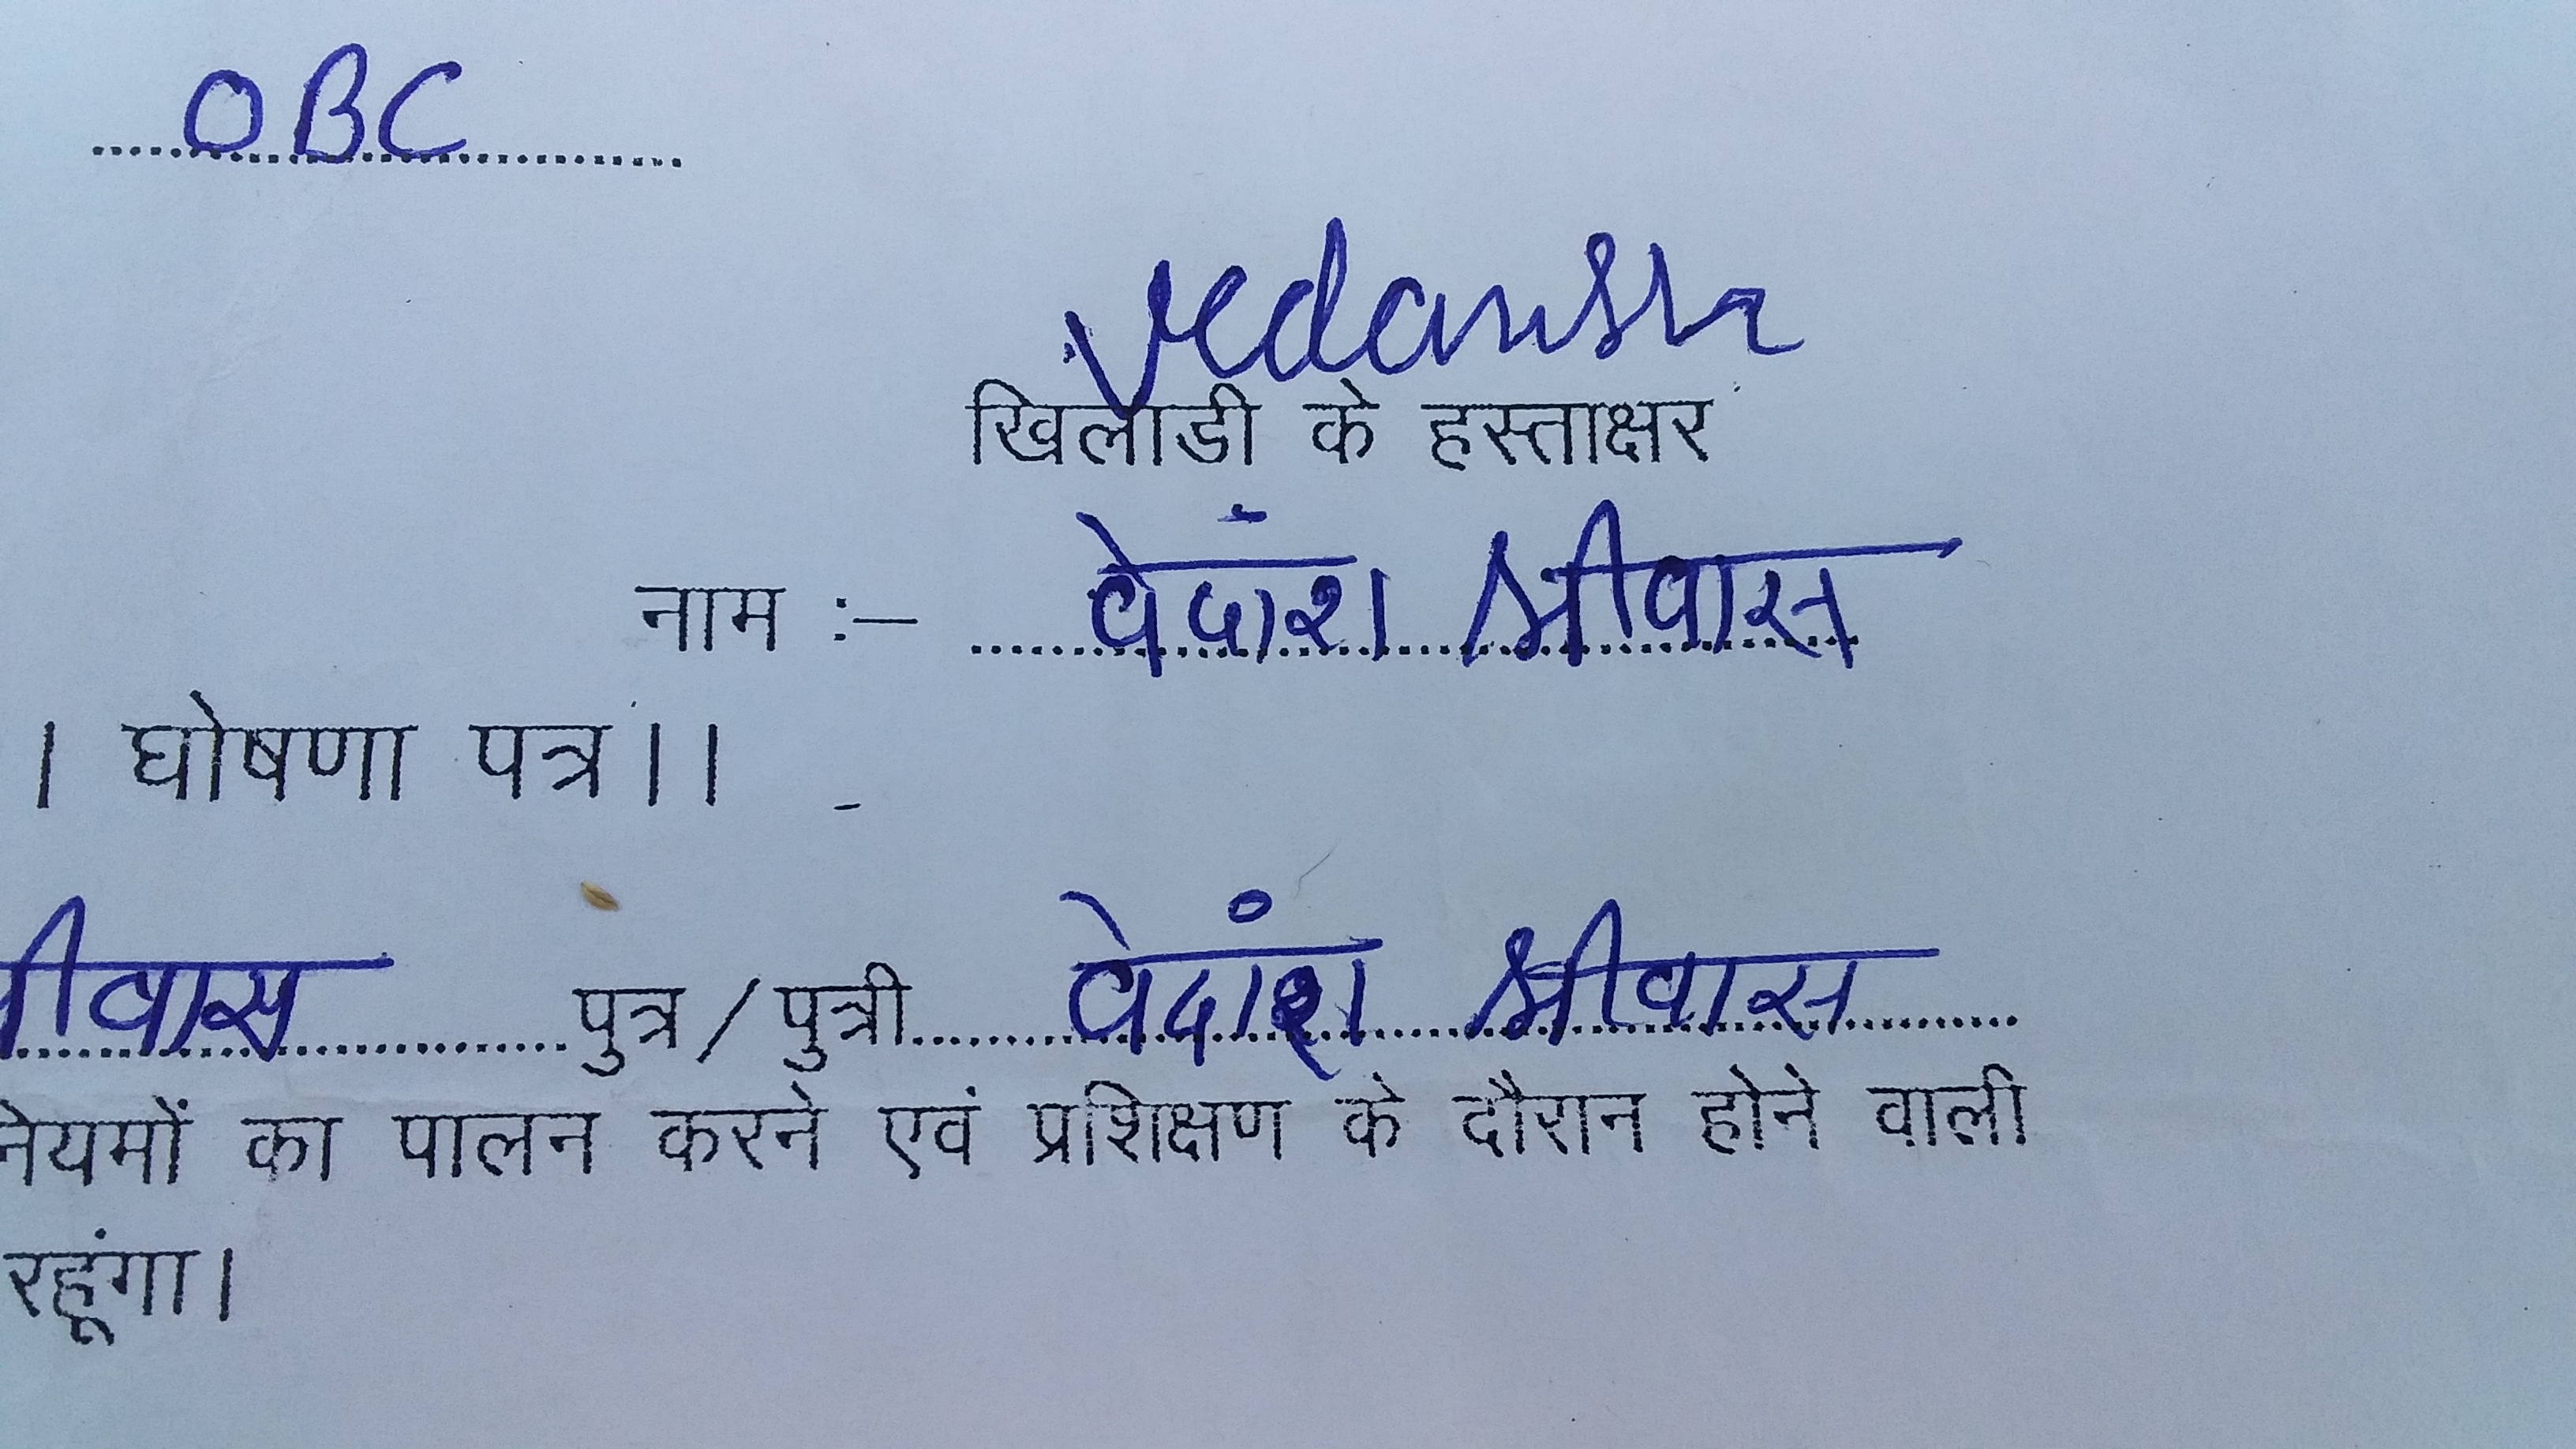 OBC
Vedansh
खिलाडी के हस्ताक्षर
नाम :– वेदांश श्रीवास
। घोषणा पत्र।।
श्रीवास पुत्र/पुत्री वेदांश श्रीवास
नियमों का पालन करने एवं प्रशिक्षण के दौरान होने वाली
रहूंगा।